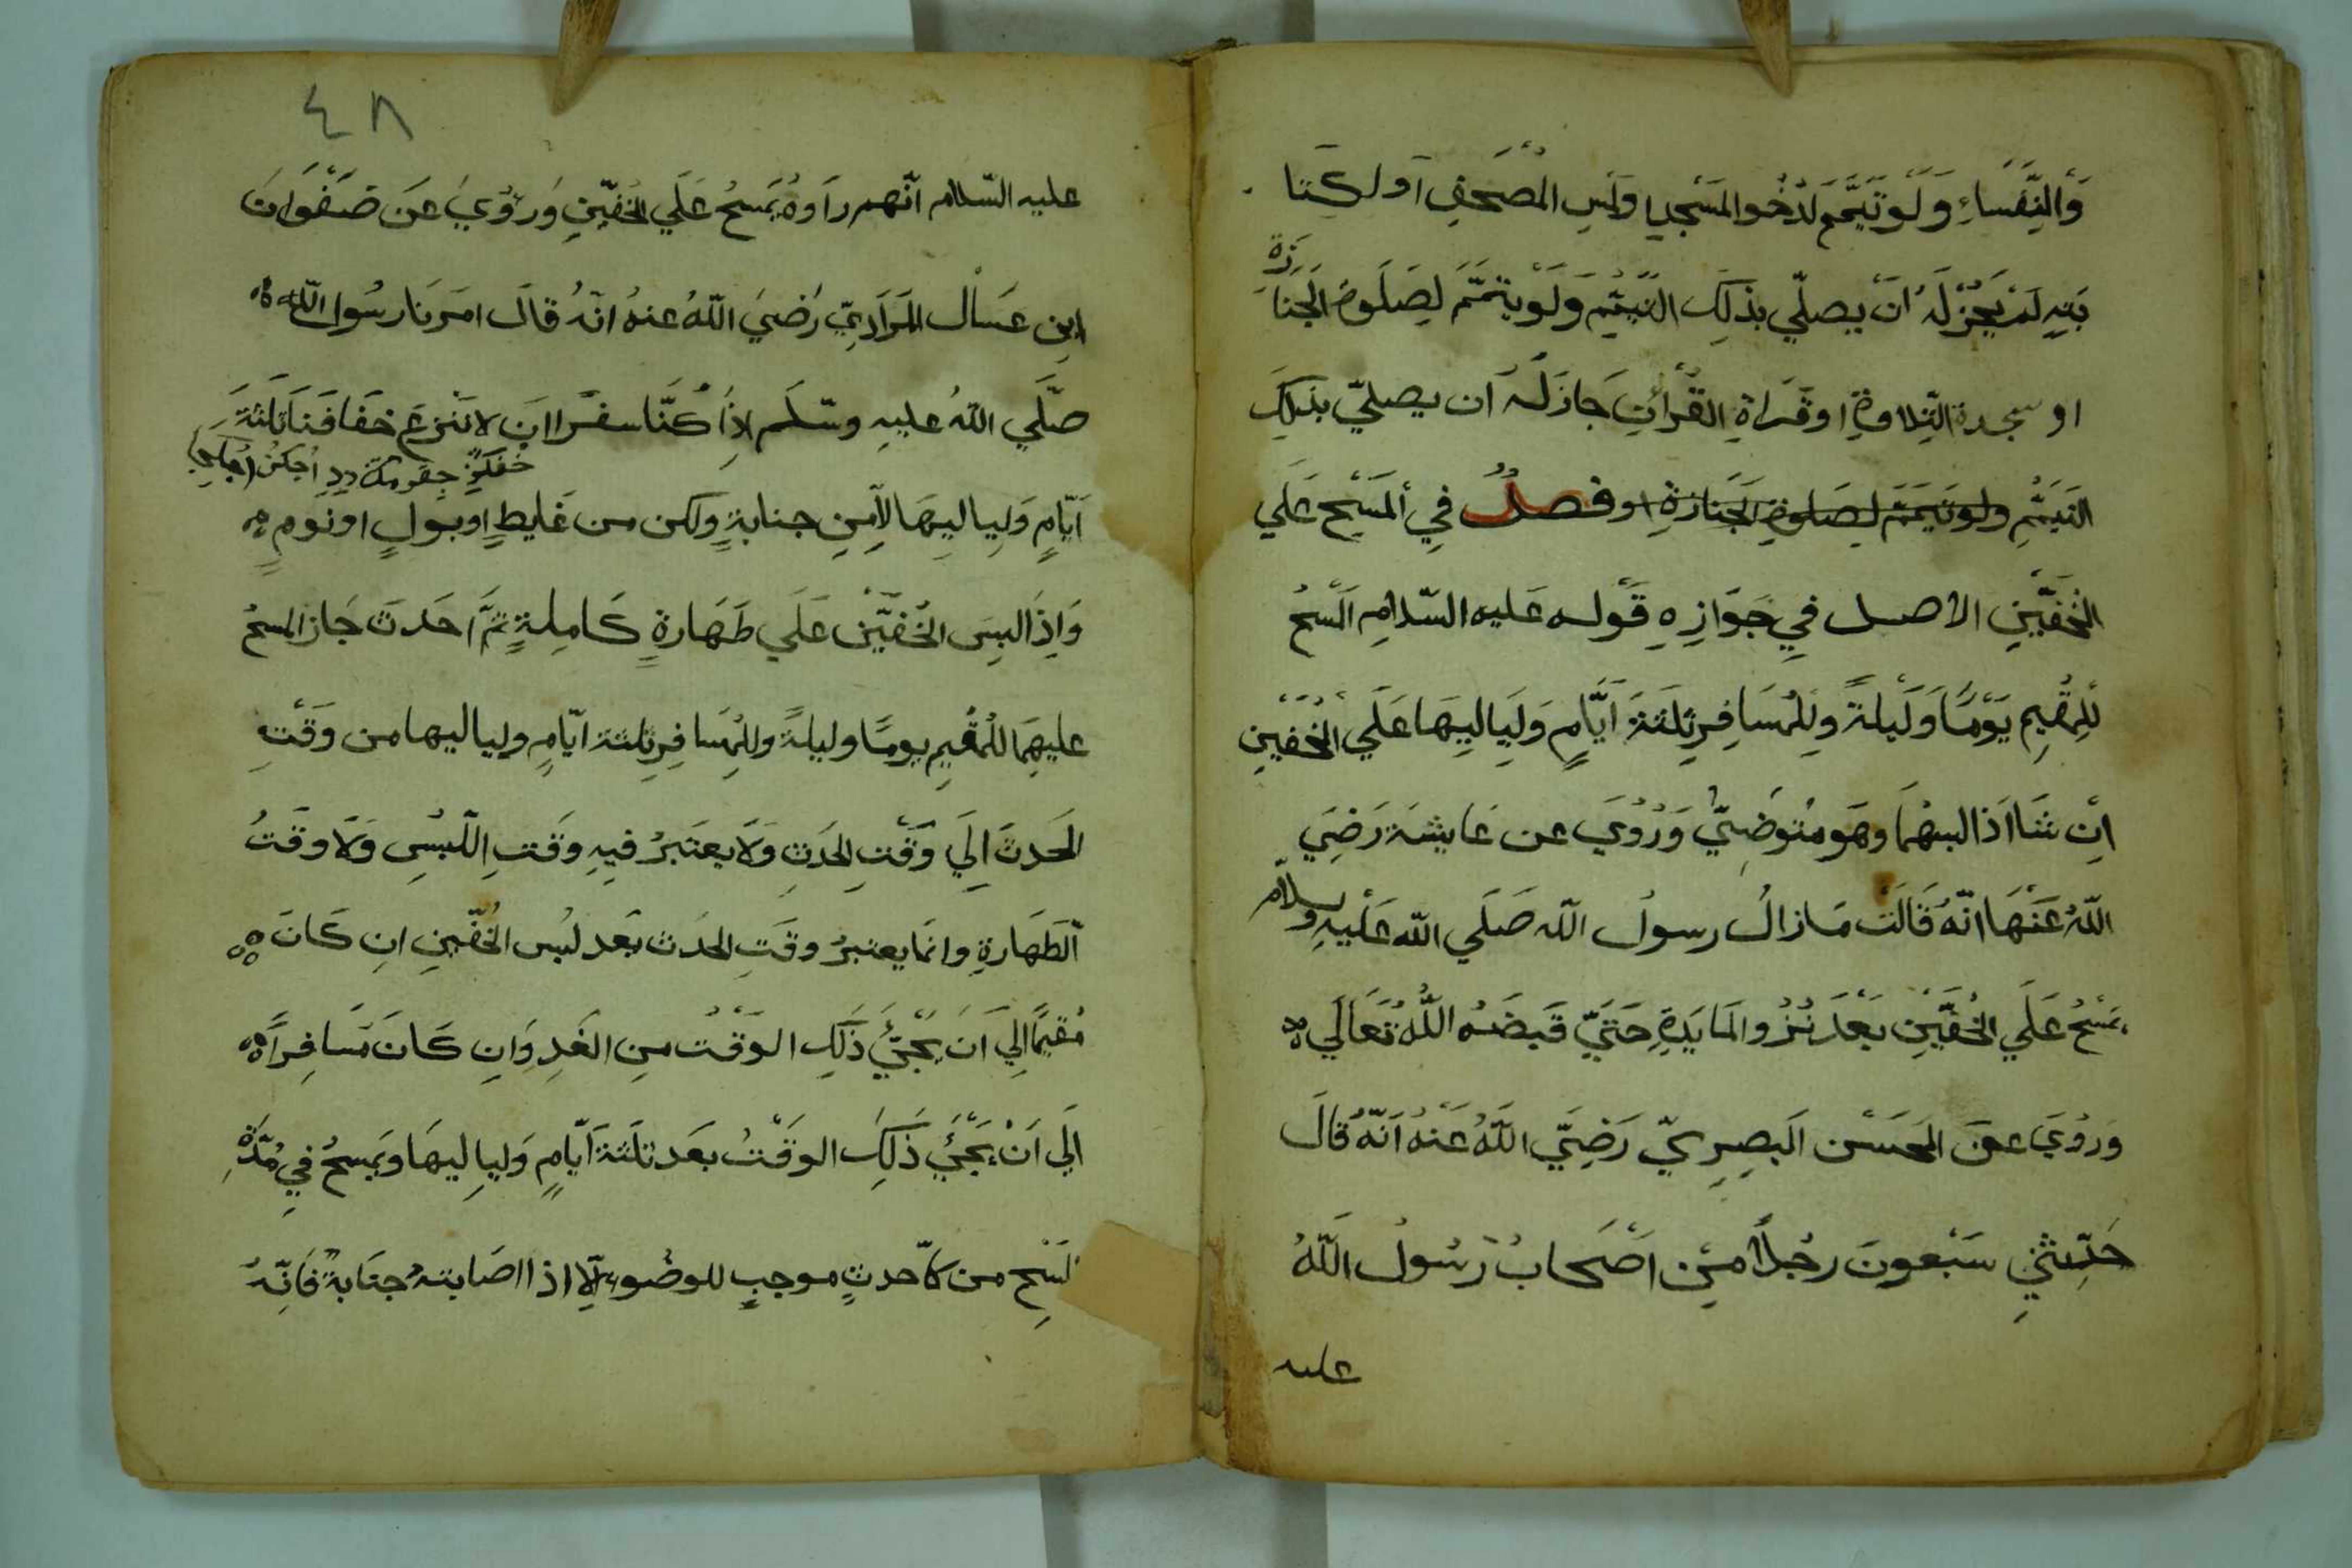 وَالنِّفَسَاءِ وَلَوْ تَيَمَّمَ لدُخُو المَسْجِد اولَمْسِ المُصْحَفِ اَو لِكِتَا
بَتِهِ لَمْ يَجُزْ لَهُ اَنْ يصلّي بذلِكَ التَّيَمُّمِ وَلَو يتمّمَ لِصَلَوةِ الجَنَازَةِ
او سجدة التِّلاوةِ او قَراةِ القُرْأَنِ جَازَ لَهُ اَن يصليّ بذلِكَ
التَيَمُّمِ ولو تَيَمّمَ لِصَلوةِ الجَنازةِ او فصلٌ فِي المَسْحِ عَلَي
الخُفَّيْنِ الاصل فيِ جَوَازِهِ قَوْله عَليه السّلامِ المَسْحُ
لِلمُقِيمِ يَوْمًا وَلَيْلةً وللمُسَافِرِ ثلثَةَ اَيَّامٍ وَلَيَالِيهَا عَلَي الخُفَّيْنِ
اِنْ شَا اَذا لبسهُمَا وهَو مُتوَضِئٌ وَرُوِيَ عن عَايشَة رَضِيَ
اللّهُ عَنْهَا انّهُ قَالَتْ مَازالُ رسولُ اللّه صَلَي اللّه عَلْيهِ وسلّم
يمْسَحُ عَلَي الخُفَّيْنِ بَعْدَ نُزُو المَايَدَةِ حَتيّ قَبضَهُ اللّهُ تَعَالَي
وَرُوِيَ عن الحَسَن البَصِرِيّ رَضِيَ اللّهُ عَنْهُ اَنّهُ قَالَ
حَدّثَنيِ سَبْعونَ رجُلاً مِنْ اَصْحَابُ رَسُولُ اللّهُ
عليه
٤٨
عليه السّلام انّهم راَوهُ يمَسحُ عَلَي الخُفّينِ وَرُوِيَ عَن صَفْوَانَ
ابن عسَال المَرَادِيّ رَضيَ اللّهُ عنهُ انّهُ قالَ امَرنَا رسُول اللّه
صلَّي اللّهُ عليهِ وسّلَم اِذَا كُنّا سفَرا اَن لا نَنْزعَ خفَافَنَا ثلثةَ
اَيّامٍ وَليالِيهَا لاّ مِنِ جنابةٍ ولكن من غَايطٍ او بَولٍ او نومٍ
وَاِذَا لبِسَ الخُفّيْن عَلَي طَهَارةٍ كَامِلةٍ ثمَّ احَدثَ جَاز المسحُ
عليهِمَا للمُقيمِ يومًا وليلةً وللمُسَافِرِ ثلثة ايّامٍ ولياليها من وَقْتِ
الحَدثَ اِلَي وَقْتِ الحَدثِ وَلاَ يعتَبرُ فيهِ وَقتِ اللّبْسِ وَلاَ وقتُ
الطَهَارةِ وانمَا يعتبرُ وقتِ الحَدث بَعد لبُس الخُفّينِ انِ كَانَ
مُقيمًا اِلَي اَنَ يَجْئَ ذَلِكَ الوَقْتُ مِن الغَدِ وَانِ كَانَ مَسَافِراً
الَي اَنْ يَجْئَ ذَلِكَ الوَقْتُ بَعدَ ثلَثةَ اَيّامٍ وَلياِليهَا وَيمسحُ في مُدّةِ
المَسْحِ من كلّ حدثٍ موجبٍ للوضُوءِ اِلاّ اذا اصَابتهُ جنَابةٌ فَانِّهُ